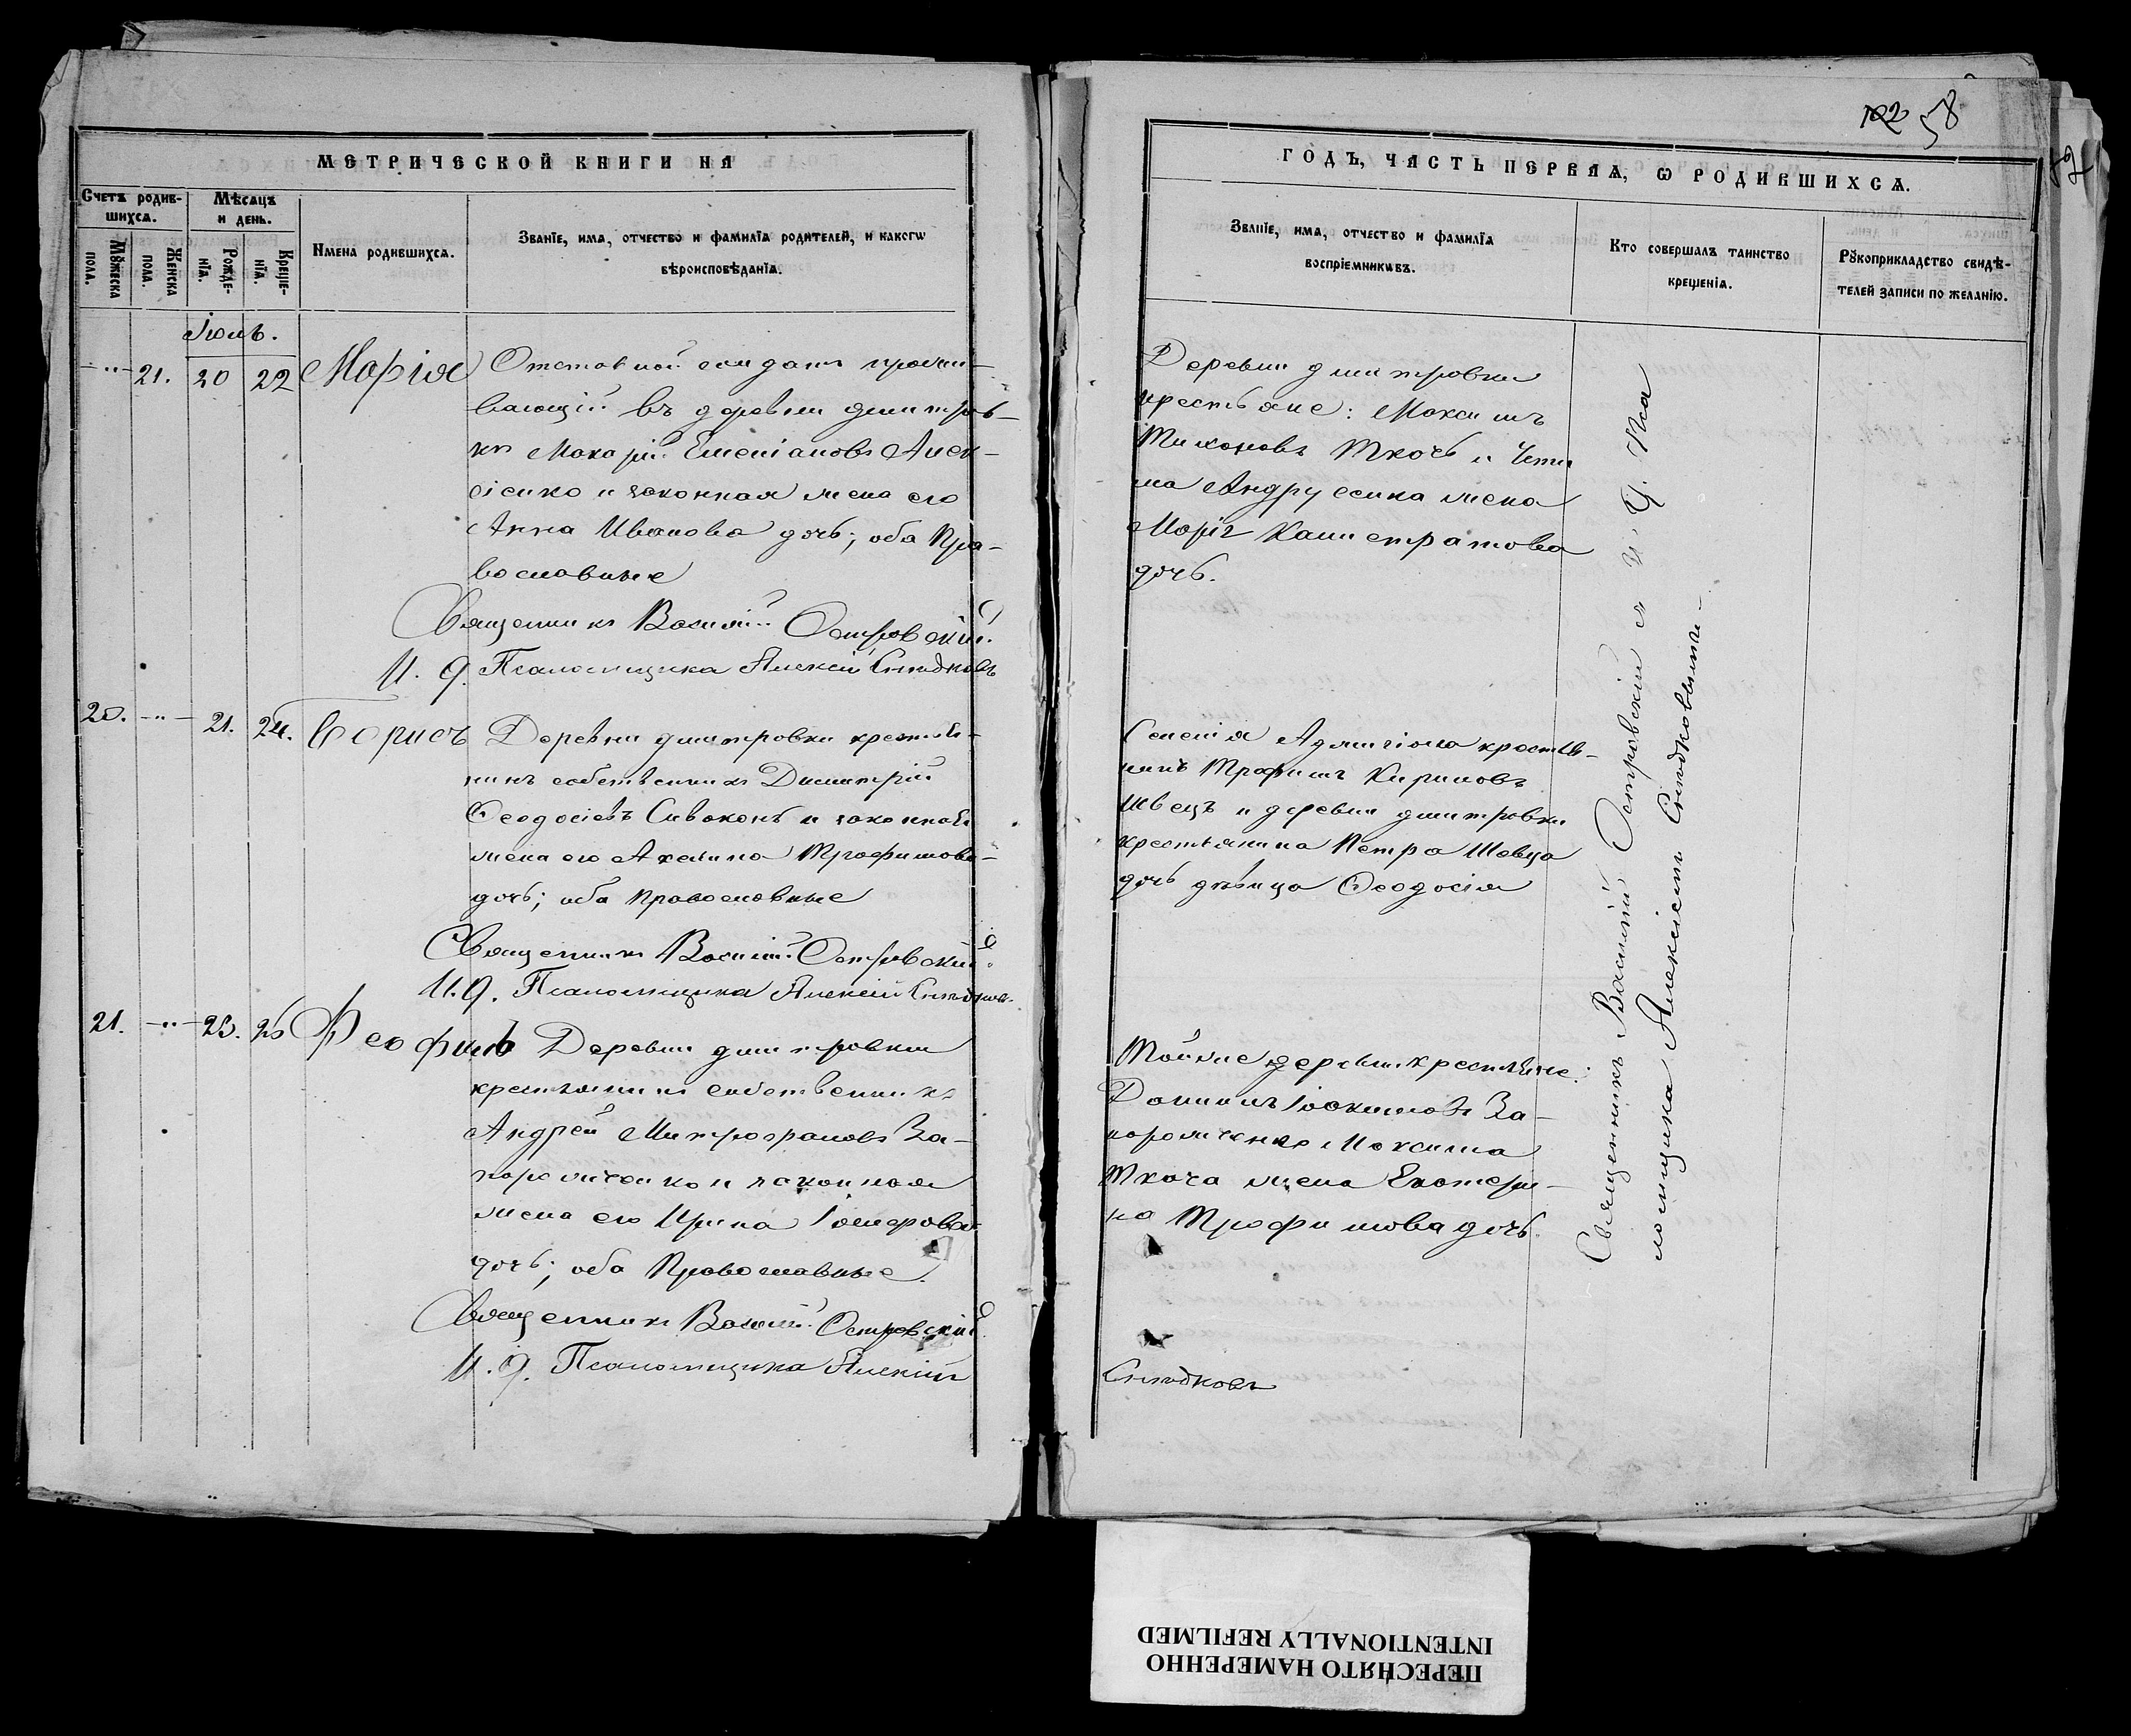 МЕТРИЧЕСКОЙ КНИГИ НА
Счетъ родив-
шихся.
Мѣсяцъ
и день.
Мꙋжеска
пола.
Женска
пола.
Рожде-
нїя.
Креще-
нїя.
Имена родившихся.
Званїе, имя, отчество и фамилїя родителей, и какогѡ
вѣроисповѣданїя.
Іюль.
21. 20 22 Марія
Отставной солдатъ прожи-
вающій въ деревни Дмитров-
кѣ Макарій Емеліановъ Алек-
сіенко и законная жена его
Анна Иванова дочь; оба Пра-
вославные
Священникъ Василій Островскій.
И. д. Псаломщика Алексій
20. 21. 24. Борисъ
Деревни Дмитровки крестья-
нинъ собственникъ Димитрій
Ѳеодосіевъ Сивоконь и законная
жена его Акилина Трофимова
дочь; оба Православные
Священникъ Василій Островскій.
И. д. Псаломщика Алексій
21. 23. 25 Ѳеофилъ
Деревни Дмитровки
крестьянинъ собственникъ
Андрей Митрофановъ За-
порожченко и законная
жена его Ирина Іосифова
дочь; оба Православные.
Священникъ Василій Островскій
И. д. Псаломщика Алексій
102 58
ГОДЪ, ЧАСТЬ ПЕРВАЯ, Ѡ РОДИВШИХСЯ.
Званїе, имя, отчество и фамилїя
воспрїемникѡвъ.
Кто совершалъ таинство
крещенїя.
Рꙋкоприкладство свидѣ-
телей записи по желанїю.
Деревни Дмитровки
крестьяне: Максимъ
Тихоновъ Ткачь и
Андрусенка жена
Марія Калистратова
дочь.
Селенія крестья-
нинъ Трофимъ Кириловъ
Швецъ и деревни Дмитровки
крестьянина Петра Шевца
дочь дѣвица Ѳеодосія
Той же деревни крестьяне:
Даніилъ Іоакимовъ За-
порожченко Максима
Ткача жена Екатери-
на Трофимова дочь.
Священникъ Василій Островскій съ И. Д. Пса
ломщика Алексіемъ
ПЕРЕСНЯТО НАМЕРЕННО
INTENTIONALLY REFILMED